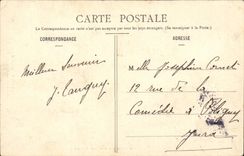 CARTE POSTALE
La Correspondance au recto n'est pas acceptée par tous les pays étrangers. (Se renseigner à la Poste.)
CORRESPONDANCE
ADRESSE
Meilleur Souvenir
J.
Melle Joséphine
12 rue de la
Comédie à Poligny
Jura